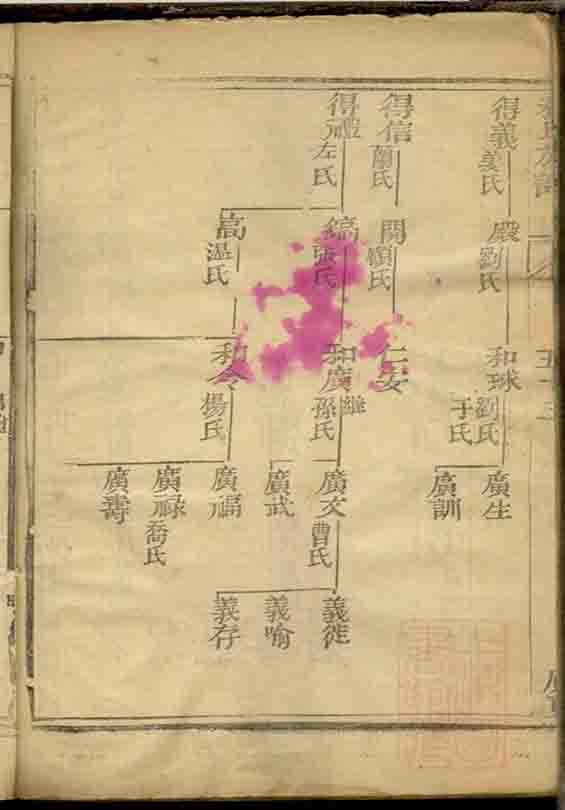 得義
姜氏
殿
劉氏
和球
劉氏
于氏
廣生
廣訓
得信
蘭氏
開
仁安
得禮
左氏
鎬
張氏
和廣
繼
孫氏
廣文
曹氏
廣武
義徙
義喻
義存
高
溫氏
和令
楊氏
廣福
廣祿
喬氏
廣壽
五十三